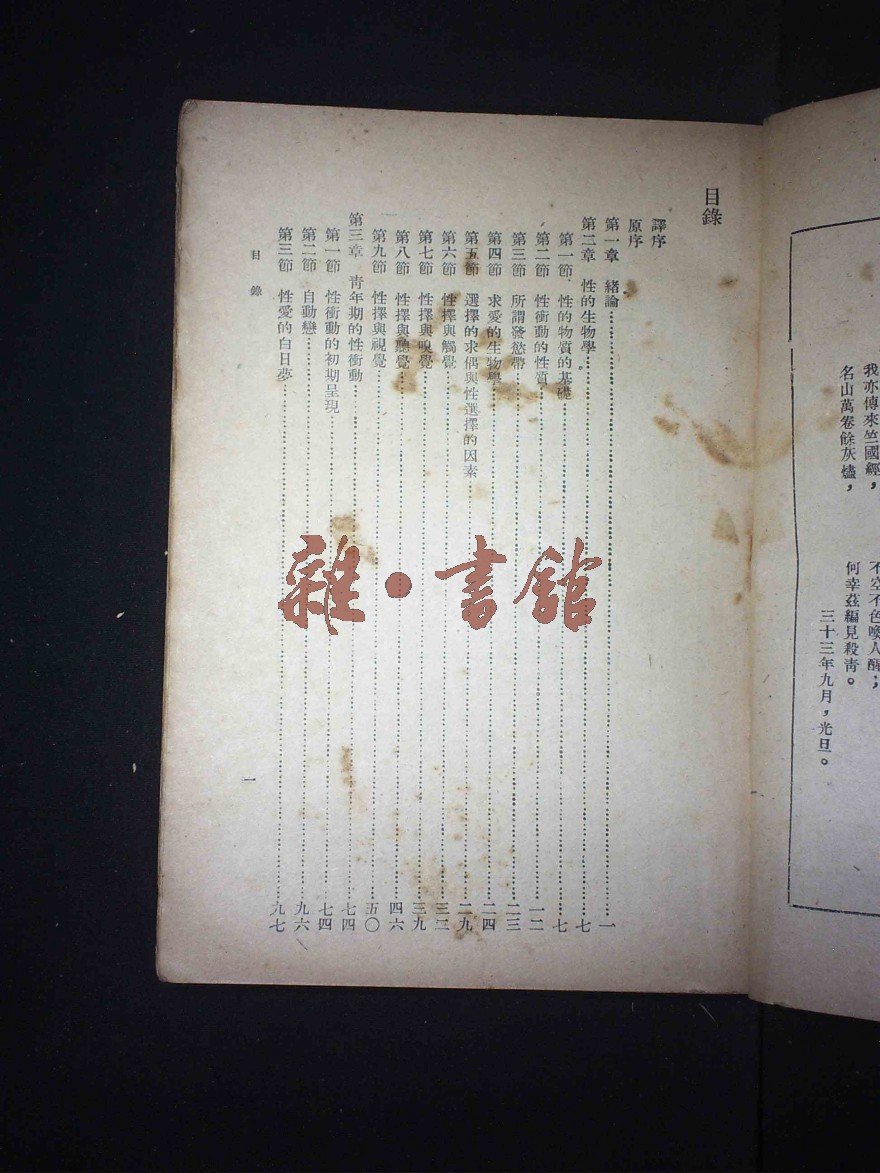 我亦傳來竺國經，
不空不色喚人醒；
名山萬卷餘灰燼，
何幸茲編見殺青。
三十三年九月，光旦。
目錄
譯序
原序
第一章 緒論……一
第二章 性的生物學……七
第一節 性的物質的基礎……七
第二節 性衝動的性質……一二
第三節 所謂發慾帶……二三
第四節 求愛的生物學……二四
第五節 選擇的求偶與性選擇的因素……二九
第六節 性擇與觸覺……三二
第七節 性擇與嗅覺……三九
第八節 性擇與聽覺……四六
第九節 性擇與視覺……五〇
第三章 青年期的性衝動……七四
第一節 性衝動的初期呈現……七四
第二節 自動戀……九六
第三節 性愛的白日夢……九七
目錄
一
雜·書館